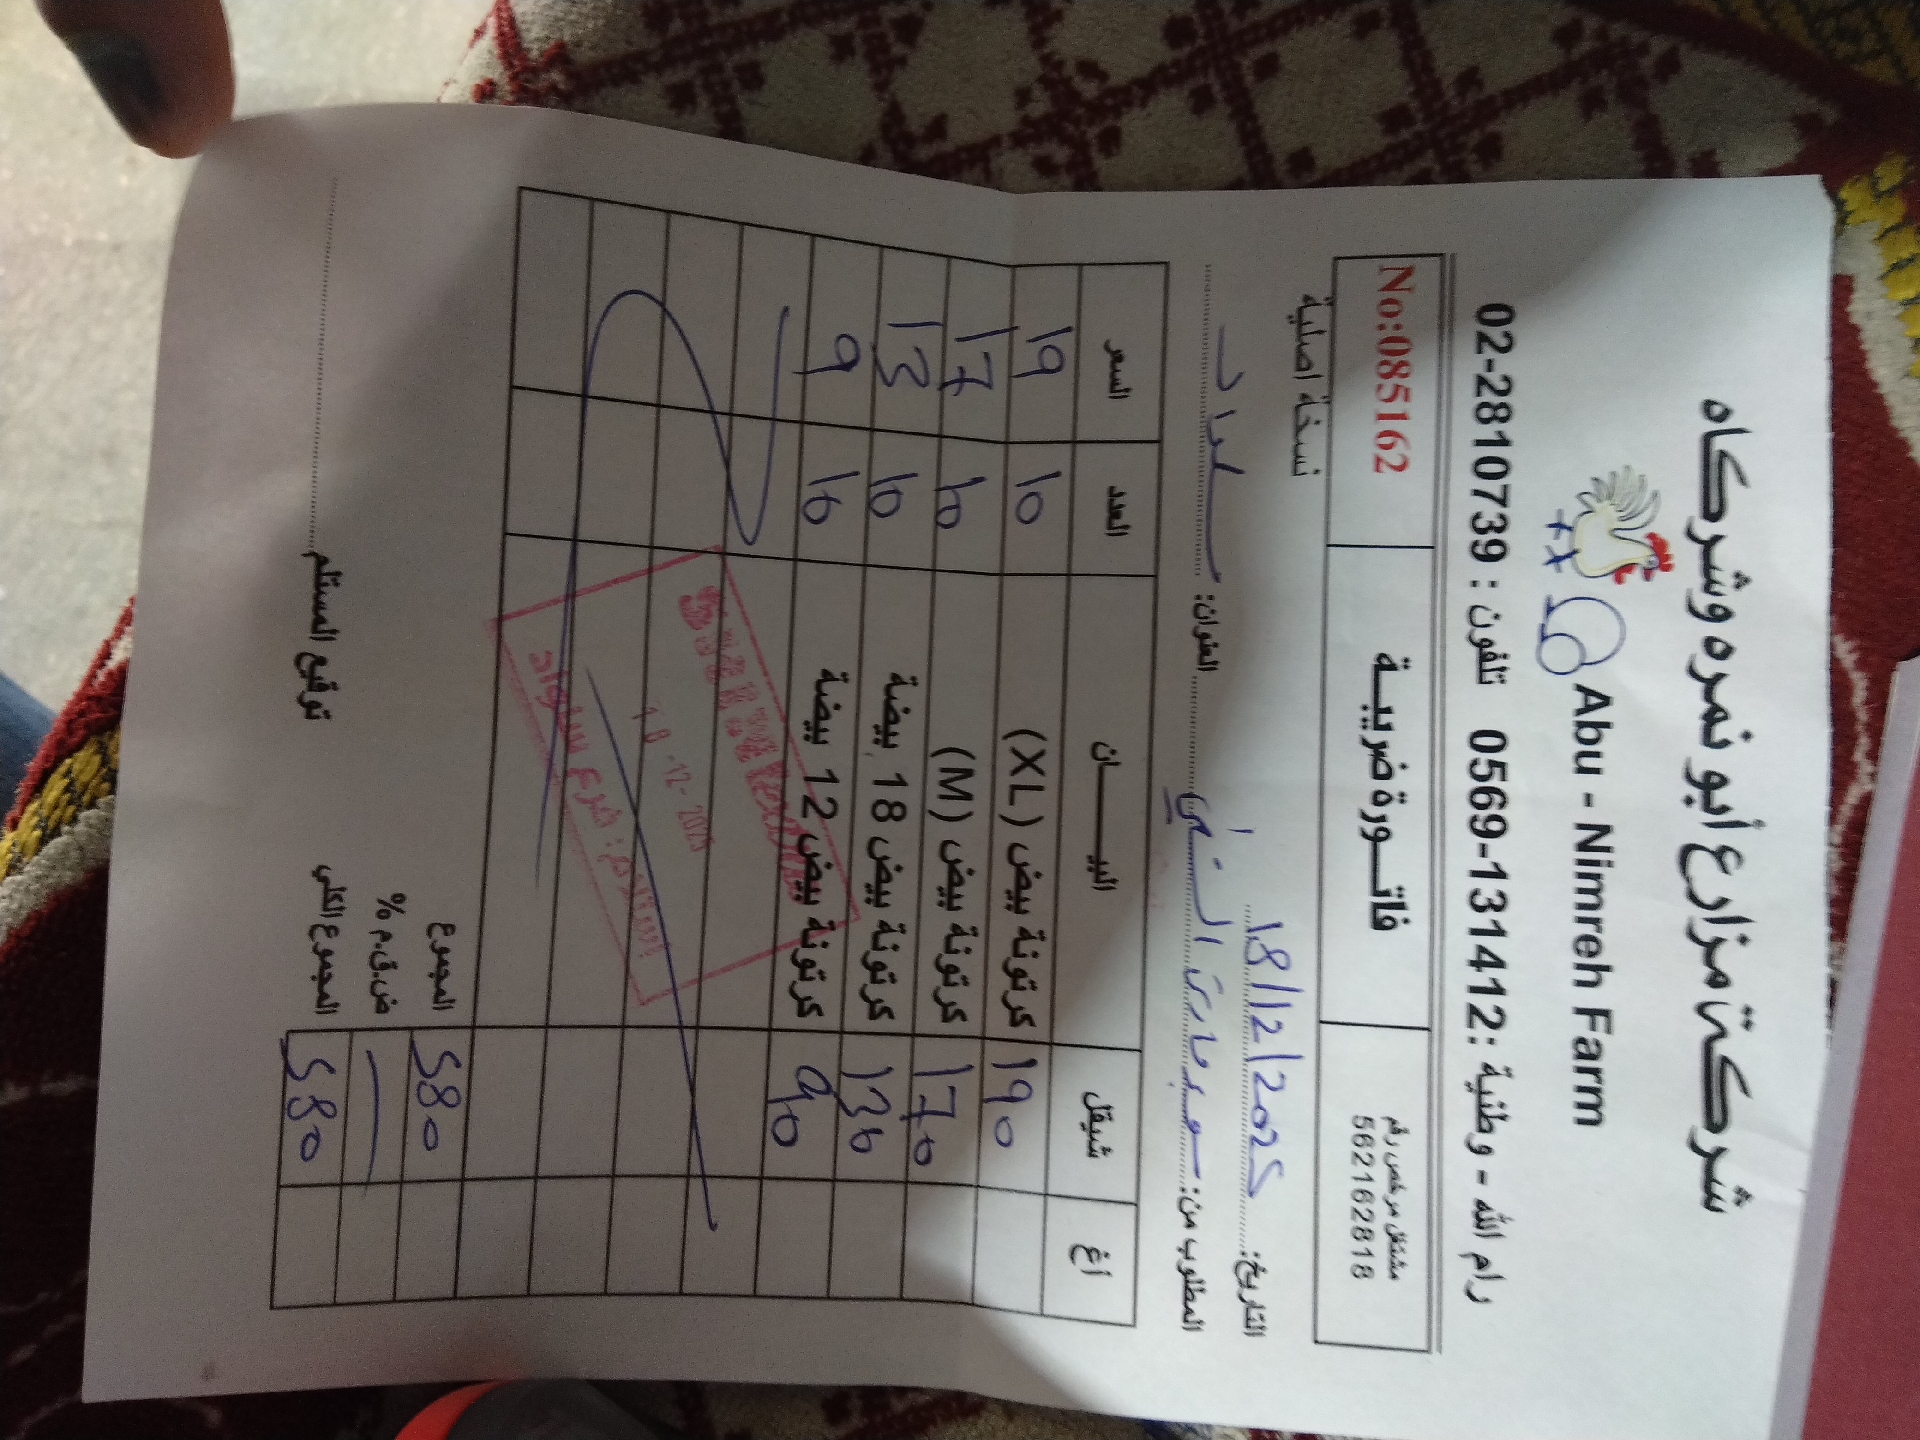 شركة مزارع أبو نمره وشركاه
Abu - Nimreh Farm
رام الله - وطنية : 0569-131412 تلفون : 02-2810739
مشتغل مرخص رقم
562162818
فاتـــورة ضريبـــة
No:085162
نسخة اصلية
التاريخ: 18/12/2025
المطلوب من: العنوان: سلواد
اغ شيقل البيـــــان العدد السعر
190 كرتونة بيض (XL) 10 19
170 كرتونة بيض (M) 10 17
130 كرتونة بيض 18 بيضة 10 13
90 كرتونة بيض 12 بيضة 10 9
18 -12- 2025
استلام: فرع سلواد
المجموع 580
ض.ق.م %
المجموع الكلي 580
توقيع المستلم